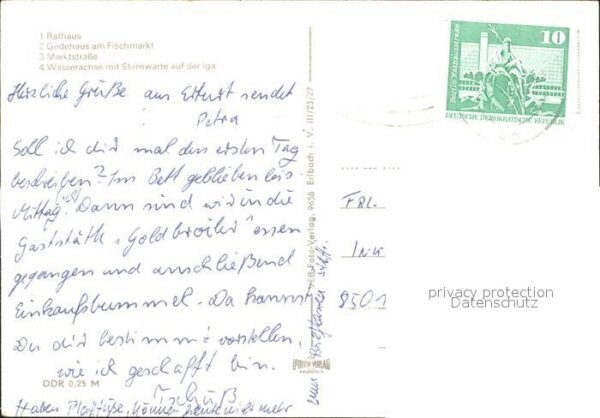 1 Rathaus
2 Gildehaus am Fischmarkt
3 Marktstraße
4 Wasserachse mit Sternwarte auf der iga
Herzliche Grüße aus Erfurt sendet
Petra
Soll ich dir mal den ersten Tag
beschreiben? Im Bett geblieben bis
Mittag. Dann sind wir in die
Gaststätte "Goldbroiler" essen
gegangen und anschließend
Einkaufsbummel. Da kannst
Du dir bestimmt vorstellen,
wie ich geschafft bin.
Tschüß
Haben Plattfüße, können heute nicht mehr
DDR 0,25 M
VEB Foto-Verlag, 9658 Erlbach i. V. III/23/27
FOTO VERLAG
ERLBACH
10
Berlin, Rathausstraße
DEUTSCHE DEMOKRATISCHE REPUBLIK
FRL.
8501
privacy protection
Datenschutz